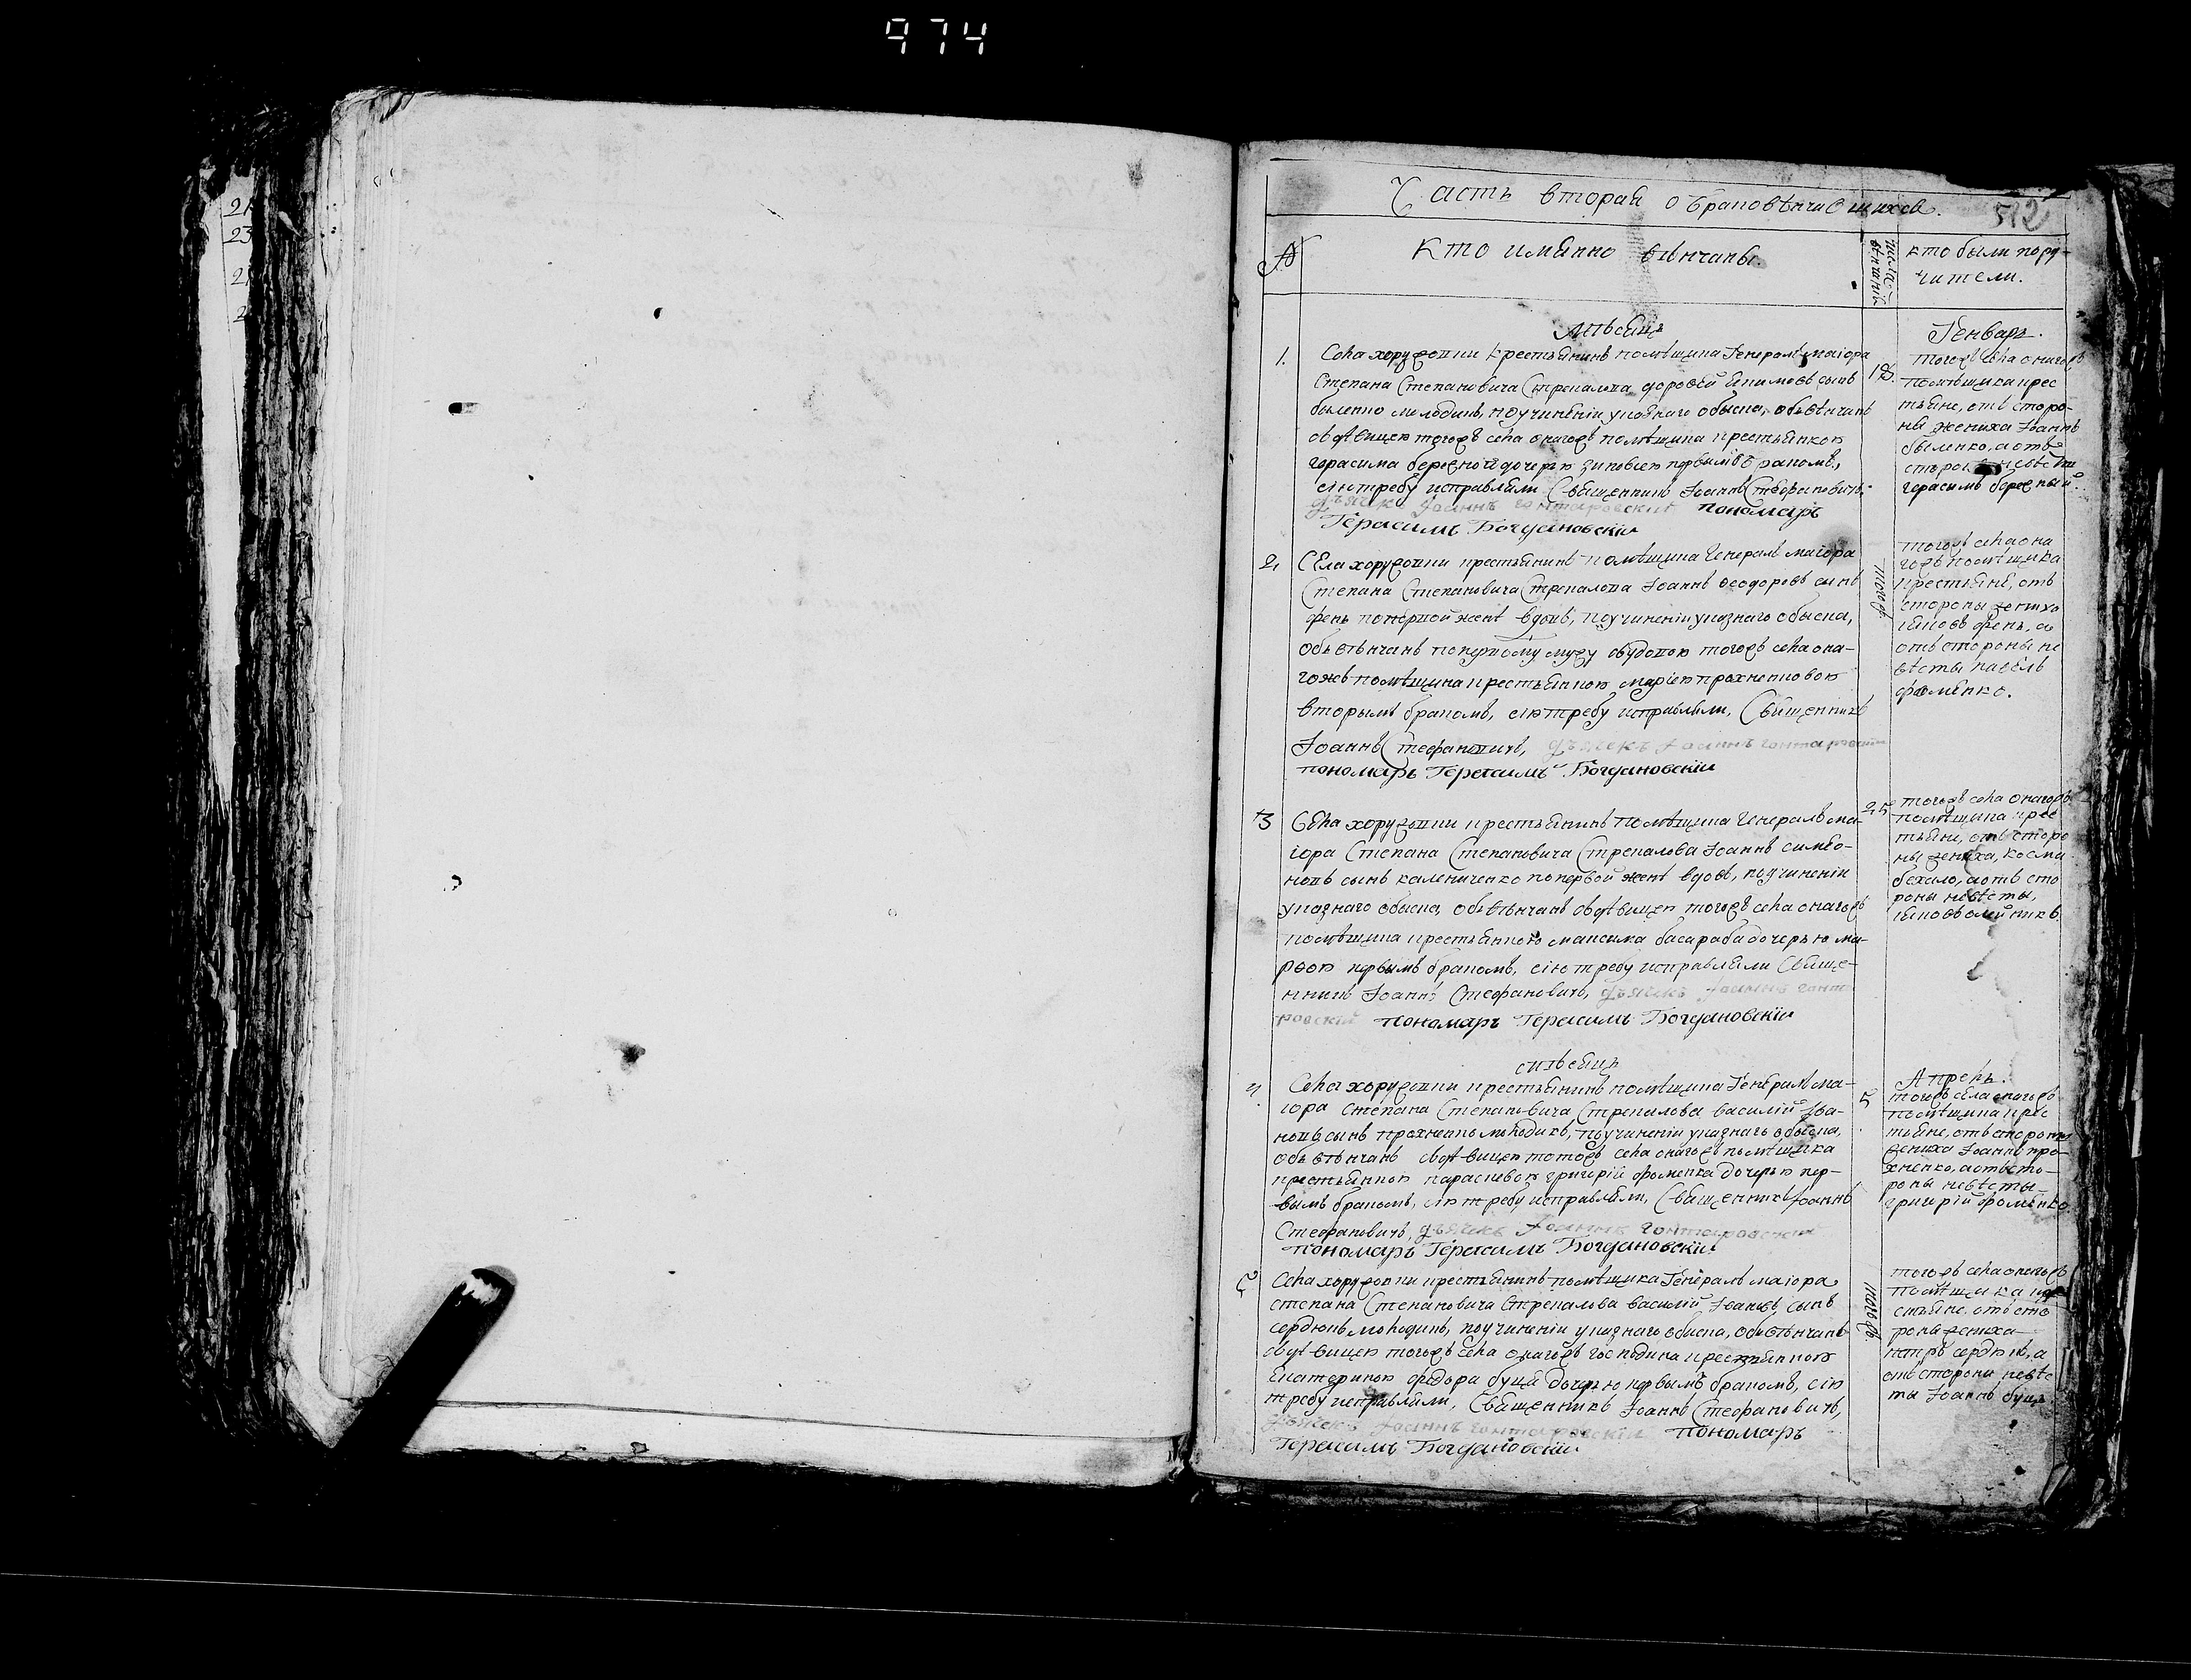 974
21
23
21
2
Часть вторая о браковѣнчавшихся.
512
№
Кто имянно вѣнчаны.
число вѣнчаній
кто были пору-
чители.
Мѣсяцъ
Генварь.
1.
Села хоружовки крестьянинъ помѣщика Генералъ маіора
Степана Степановича Стрекалова дорофѣй якимовъ сынъ
быленко молодикъ, по учиненіи указнаго обыска, обвѣнчанъ
здѣвицею тогожъ села оногожъ помѣщика крестьянкою
герасима бережной дочерью зиновіею первымъ бракомъ,
сію требу исправляли Священникъ Іоаннъ Стефановичъ,
дьячекъ Іоаннъ гонтаровскій пономарь
Герасимъ Богдановскій
18.
тогожъ села оногожъ
помѣщика крес
тьяне, отъ сторо-
ны жениха Іоаннъ
быленко, а отъ
стороны невѣсты
герасимъ бережный.
2,
Села хоружовки крестьянинъ помѣщика Генералъ маіора
Степана Степановича Стрекалова Іоаннъ Ѳеодоровъ сынъ
фень по первой женѣ вдовъ, по учиненіи указнаго обыска,
обвѣнчанъ по первому мужу овдовою тогожъ села она-
гожъ помѣщика крестьянкою маріею прохненковою
вторымъ бракомъ, сію требу исправляли, Священникъ
Іоаннъ Стефановичъ, дьячекъ Іоаннъ гонтаровскій
пономарь Герасимъ Богдановскій
тогожъ
тогожъ села она
гожъ помѣщика
крестьяне, отъ
стороны жениха
яковъ фень, а
отъ стороны не
вѣсты павелъ
фоменко.
3
Села хоружовки крестьянинъ помѣщика Генералъ ма-
іора Степана Степановича Стрекалова Іоаннъ симео-
новъ сынъ калениченко по первой женѣ вдовъ, по учиненіи
указнаго обыска, обвѣнчанъ здѣвицею тогожъ села оногожъ
помѣщика крестьянкою максима басараба дочерью ма-
рѳою первымъ бракомъ, сію требу исправляли Священ-
никъ Іоаннъ Стефановичъ, дьячекъ Іоаннъ гонта
ровскій пономарь Герасимъ Богдановскій
25
тогожъ села оногожъ
помѣщика крес
тьяне, отъ сторо
ны жениха, косма
бехало, а отъ сто
роны невѣсты,
яковъ олейникъ
мѣсяцъ
Апрель.
4
Села хоружовки крестьянинъ помѣщика Генералъ ма-
іора степана Степановича Стрекалова василій Іва-
новъ сынъ прохненко молодикъ, по учиненіи указнаго обыска,
обвѣнчанъ здѣвицею тогожъ села оногожъ помѣщика
крестьянкою параскивою григорій фоменка дочерью пер-
вымъ бракомъ, сію требу исправляли, Священникъ Іоаннъ
Стефановичъ, дьячекъ Іоаннъ гонтаровскій
пономарь Герасимъ Богдановскій
5
тогожъ села оногожъ
помѣщика крес
тьяне, отъ стороны
жениха Іоаннъ про-
хненко, а отъ сто-
роны невѣсты
григорій фоменко
5
Села хоружовки крестьянинъ помѣщика Генералъ маіора
степана Степановича Стрекалова василій Іоановъ, сынъ
сердюкъ молодикъ, по учиненіи указнаго обыска, обвѣнчанъ
здѣвицею тогожъ села оногожъ господина крестьянкою
Екатериною федора буця дочерью первымъ бракомъ, сію
требу исправляли, Священникъ Іоаннъ Стефановичъ,
дьячекъ Іоаннъ гонтаровскій пономарь
Герасимъ Богдановскій
тогожъ
тогожъ села оногожъ
помѣщика кре
стьяне, отъ сто
роны жениха
петръ сердюкъ, а
отъ стороны невѣс
ты Іоаннъ буць